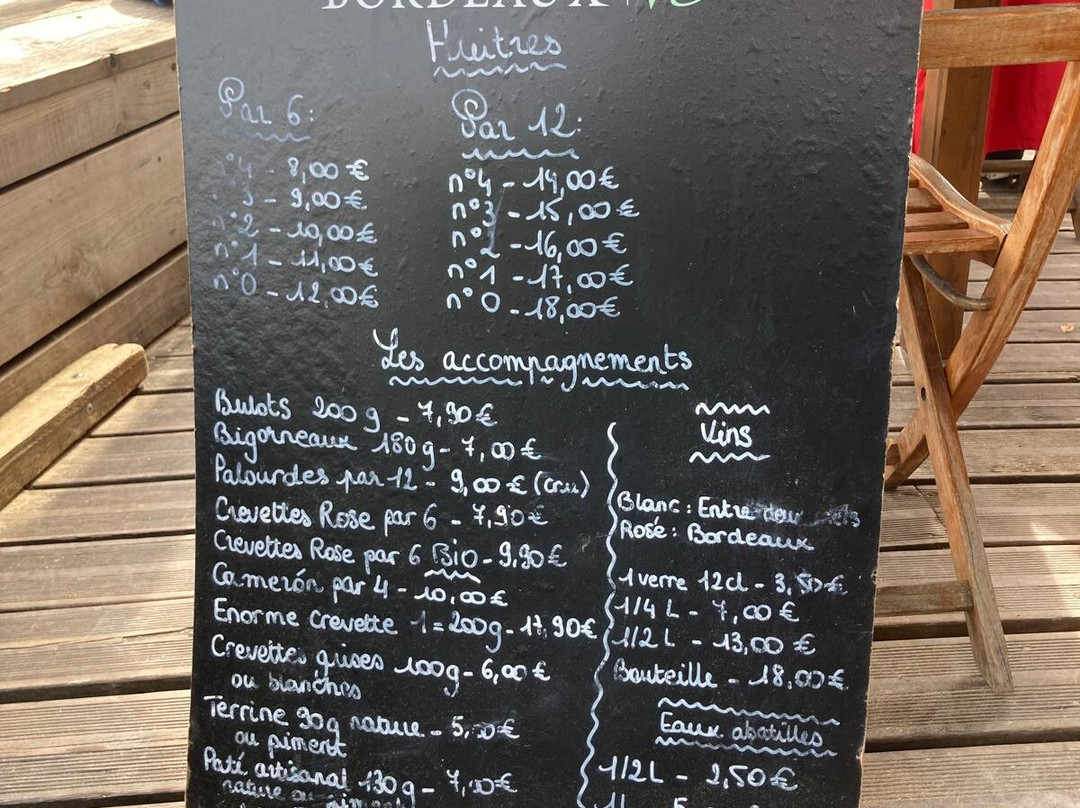 BORDEAUX
Huitres
Par 6:
n°4 - 8,00 €
3 - 9,00 €
n°2 - 10,00 €
n°1 - 11,00 €
n°0 - 12,00 €
Par 12:
n°4 - 14,00 €
n°3 - 15,00 €
n°2 - 16,00 €
n°1 - 17,00 €
n°0 - 18,00 €
Les accompagnements
Bulots 200 g - 7,90 €
Bigorneaux 180 g - 7,00 €
Palourdes par 12 - 9,00 € (cru)
Crevettes Rose par 6 - 7,90 €
Crevettes Rose par 6 Bio - 9,90 €
Camerón par 4 - 10,00 €
Enorme crevette 1 = 200g - 17,90 €
Crevettes grises 100g - 6,00 €
ou blanches
Terrine 90g nature - 5,00 €
ou piment
Paté artisanal 130g - 7,00 €
nature ou piment
Vins
Blanc : Entre deux mers
Rosé : Bordeaux
1 verre 12cl - 3,50 €
1/4 L - 7,00 €
1/2 L - 13,00 €
Bouteille - 18,00 €
Eaux abatilles
1/2 L - 2,50 €
1L